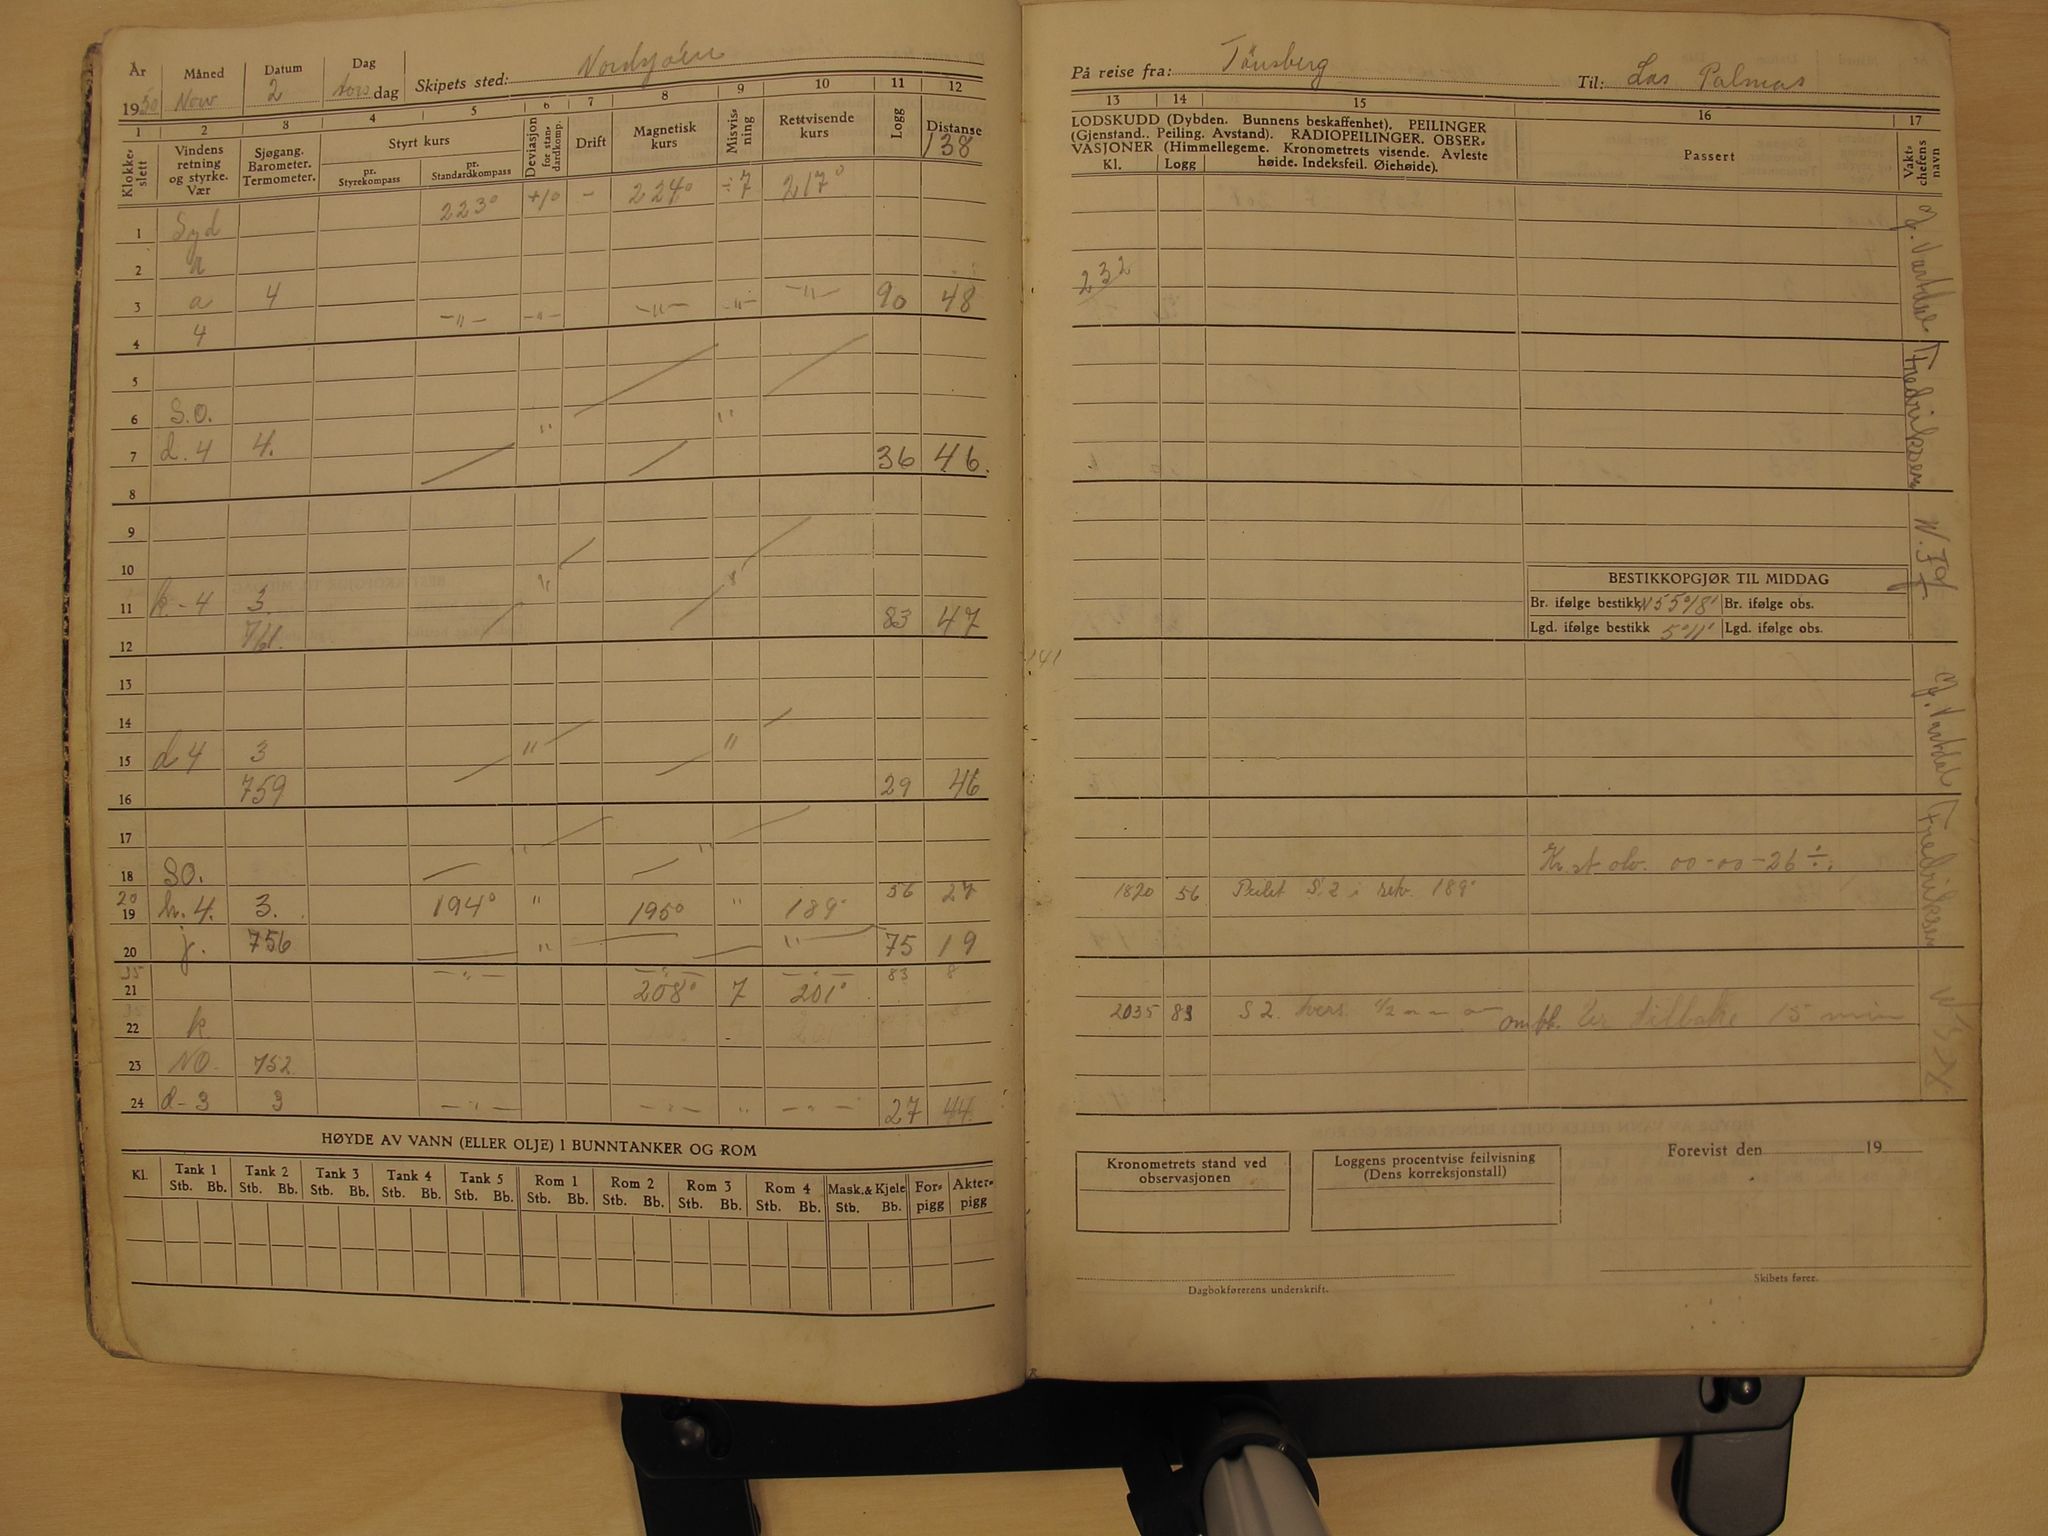 År Måned Datum Dag Skipets sted: Nordsjöen
1950 Nov 2 tors dag
1 2 3 4 5 6 7 8 9 10 11 12
Klokkeslett
Vindens retning og styrke. Vær
Sjøgang. Barometer. Termometer.
Styrt kurs
pr. Styrekompass
pr. Standardkompass
Deviasjon for standardkomp.
Drift
Magnetisk kurs
Misvisning
Rettvisende kurs
Logg
Distanse
138
223° +1° - 224° ÷7 217°
1 Syd
2
3 a 4 -"- -"- -"- -"- -"- 90 48
4 4
5
6 S.O. " "
7 d.4 4. 36 46.
8
9
10 " "
11 k-4 3. 83 47
12 761.
13
14
15 d 4 3 " "
16 759 29 46
17 " "
18 SO.
20 56 27
19 kr. 4. 3. 194° " 195° " 189°
20 j. 756 " " 75 19
35 -"- -"- -"- 83 8
21 208° 7 201°
22 k
23 NO. 752
24 d-3 3 -"- -"- " -"- 27 44
HØYDE AV VANN (ELLER OLJE) I BUNNTANKER OG ROM
Kl. Tank 1 Tank 2 Tank 3 Tank 4 Tank 5 Rom 1 Rom 2 Rom 3 Rom 4 Mask.& Kjele For- Akter-
Stb. Bb. Stb. Bb. Stb. Bb. Stb. Bb. Stb. Bb. Stb. Bb. Stb. Bb. Stb. Bb. Stb. Bb. Stb. Bb. pigg pigg
På reise fra: Tönsberg Til: Las Palmas
13 14 15 16 17
LODSKUDD (Dybden. Bunnens beskaffenhet). PEILINGER
(Gjenstand.. Peiling. Avstand). RADIOPEILINGER. OBSER-
VASJONER (Himmellegeme. Kronometrets visende. Avleste
Kl. Logg høide. Indeksfeil. Øiehøide).
Passert
Vakt-chefens navn
J. Vartdal
232
Fredriksen
BESTIKKOPGJØR TIL MIDDAG
Br. ifølge bestikk N 55°18' Br. ifølge obs.
Lgd. ifølge bestikk 5°11' Lgd. ifølge obs.
141
J. Vartdal
Kr. st. obs. 00-00-26 ÷.
1820 56 Peilet S. 2 i retv. 189°
Fredriksen
2035 83 S 2. tvers 1/2 Ur tilbake 15 min
Kronometrets stand ved observasjonen
Loggens procentvise feilvisning (Dens korreksjonstall)
Forevist den 19
Dagbokførerens underskrift.
Skibets fører.